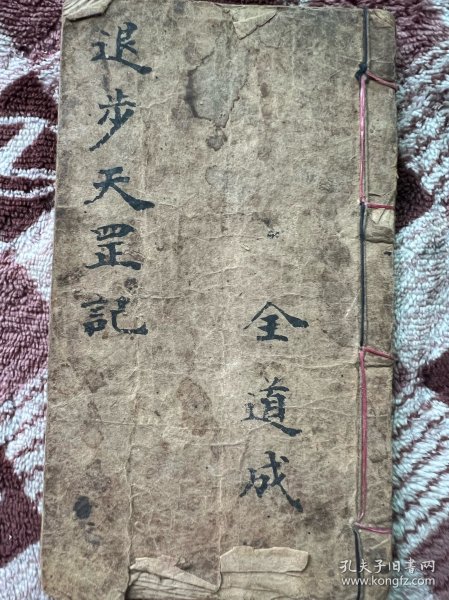 退步天罡記
全道成
孔夫子旧书网
www.kongfz.com